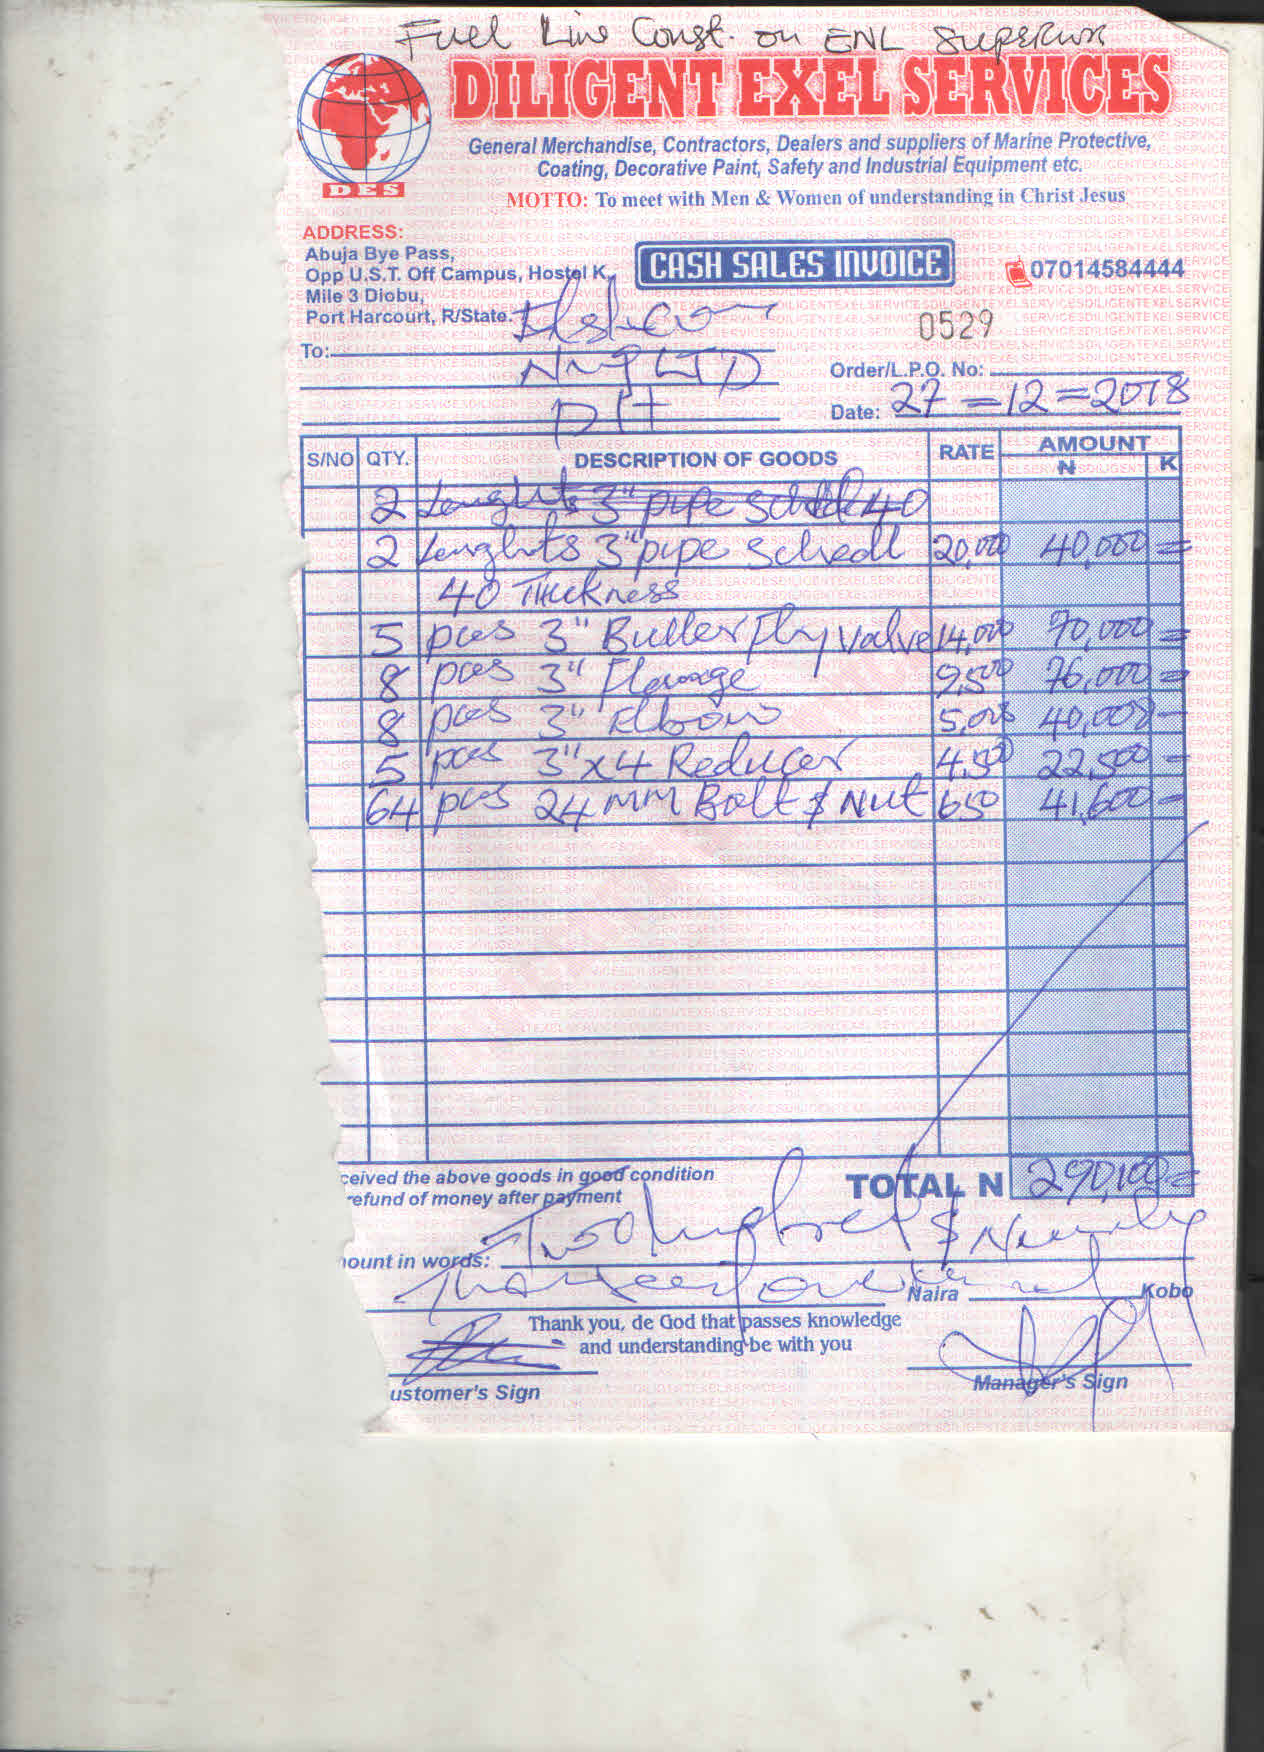 Fuel Line Const. on ENL Superior
DILIGENT EXEL SERVICES
General Merchandise, Contractors, Dealers and suppliers of Marine Protective,
Coating, Decorative Paint, Safety and Industrial Equipment etc.
DES
MOTTO: To meet with Men & Women of understanding in Christ Jesus
ADDRESS:
Abuja Bye Pass,
Opp U.S.T. Off Campus, Hostel K,
Mile 3 Diobu,
Port Harcourt, R/State.
CASH SALES INVOICE
07014584444
0529
To:
Nig LTD
PH
Order/L.P.O. No:
Date: 27-12-2018
S/NO QTY. DESCRIPTION OF GOODS RATE AMOUNT
N K
2 Lenghts 3" pipe 40
2 Lenghts 3" pipe Schedl 20,000 40,000 =
40 Thickness
5 pcs 3" Butterfly valve 14,000 70,000 =
8 pcs 3" Flange 9,500 76,000 =
8 pcs 3" Elbow 5,000 40,000 =
5 pcs 3"x4 Reducer 4,500 22,500 =
64 pcs 24 MM Bolt & Nut 650 41,600 =
ceived the above goods in good condition
refund of money after payment
TOTAL N 290,100 =
ount in words: Two Hundred & Ninety
Naira Kobo
Thank you, de God that passes knowledge
and understanding be with you
ustomer's Sign
Manager's Sign